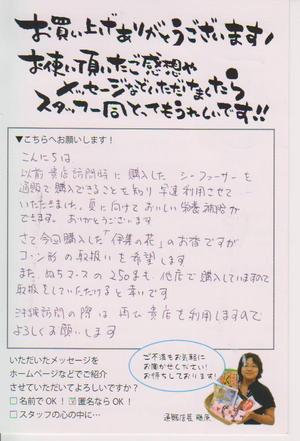 お買い上げありがとうございます！
お使い頂いたご感想や
メッセージなどいただけましたら
スタッフ一同とってもうれしいです!!
▼こちらへお願いします！
こんにちは
以前 貴店訪問時に購入した シーファーサーを
通販で購入できることを知り 早速利用させて
いただきました。夏に向けて おいしい栄養補給が
できます。ありがとうございます
さて 今回購入した「伊集の花」のお香ですが
コーン形の取扱いを希望します
また、ぬちマースの250gも 他店で購入していますので
取扱をしていただけると幸いです
沖縄訪問の際は 再び貴店を利用しますので
よろしくお願いします
いただいたメッセージを
ホームページなどでご紹介
させていただいてよろしいですか？
□名前でOK！ ☑匿名ならOK！
□スタッフの心の中に…
ご不満もお気軽に
お聞かせください！
お待ちしております！
通販店長 藤原